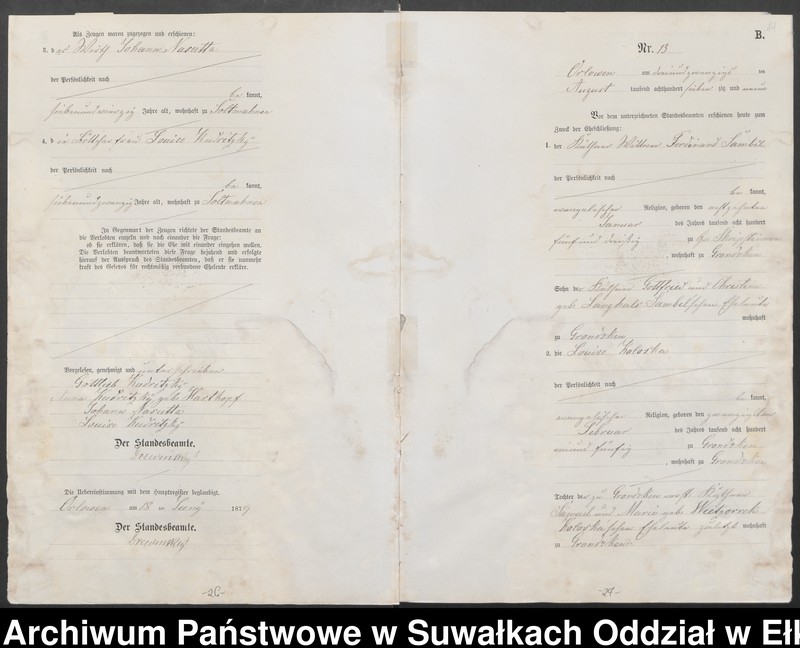 Als Zeugen waren zugezogen und erschienen:
3. der Wirth Johann Narutta
der Persönlichkeit nach
be kannt,
siebenundvierzig Jahre alt, wohnhaft zu Soltmahnen
4. die Losfrau Louise Kudritzky
der Persönlichkeit nach
be kannt,
siebenundzwanzig Jahre alt, wohnhaft zu Soltmahnen
In Gegenwart der Zeugen richtete der Standesbeamte an
die Verlobten einzeln und nach einander die Frage:
ob sie erklären, daß sie die Ehe mit einander eingehen wollen.
Die Verlobten beantworteten diese Frage bejahend und erfolgte
hierauf der Ausspruch des Standesbeamten, daß er sie nunmehr
kraft des Gesetzes für rechtmäßig verbundene Eheleute erkläre.
Vorgelesen, genehmigt und unterschrieben
Gottlieb Kudritzky
Anna Kudritzky geb. Hartkopf
Johann Narutta
Louise Kudritzky
Der Standesbeamte.
Die Uebereinstimmung mit dem Hauptregister beglaubigt.
Orlowen am 18 ten Juny 1879
Der Standesbeamte.
-26-
B.
Nr. 13
Orlowen am dreiundzwanzigs ten
August tausend achthundert sieben zig und neun
Vor dem unterzeichneten Standesbeamten erschienen heute zum
Zweck der Eheschließung:
1. der Käthner Wittwer Ferdinand Sambill
der Persönlichkeit nach
be kannt,
evangelischer Religion, geboren den achtzehnten
Januar des Jahres tausend acht hundert
fünf und dreißig zu
, wohnhaft zu Grondzken
Sohn der Käthner Gottfried und Christine
geb. Langhals Sambillschen Eheleute
wohnhaft
zu Grondzken
2. die Louise Koloska
der Persönlichkeit nach
be kannt,
evangelischer Religion, geboren den zwanzigsten
Februar des Jahres tausend acht hundert
und fünfzig zu Grondzken
, wohnhaft zu Grondzken
Tochter der zu Grondzken Käthner
Samuel und Marie geb. Wietzorrek
Koloskaschen Eheleute zuletzt wohnhaft
zu Grondzken
-27-
Archiwum Państwowe w Suwałkach Oddział w Ełk